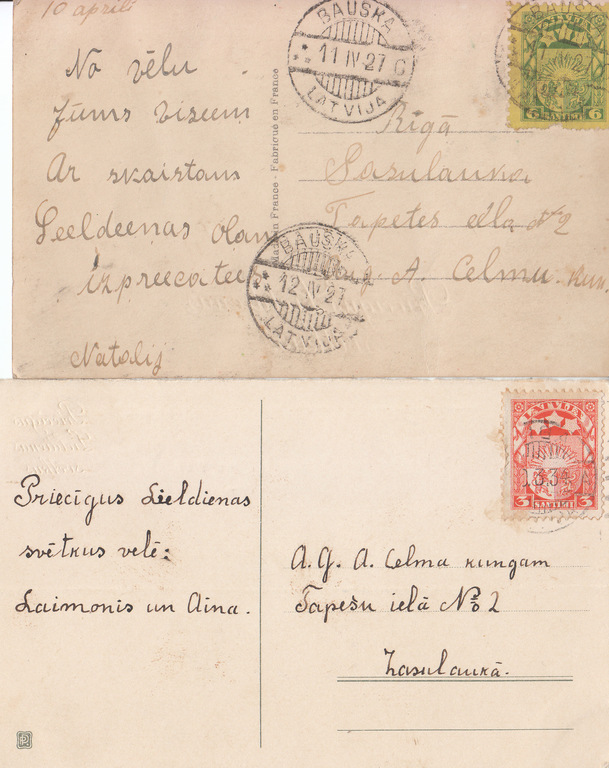 10 aprilī
BAUSKA
11 IV 27 C
LATVIJA
LATVIJA
6 SANTIMI 6
No vēlu
Jums viseem
Ar skaistam
Leeldeenas olam
izpreecatees
Natalij
Made in France - Fabriqué en France
Rīgā
Sasulauka
Tapetes eela № 2
A. Celmu kun.
BAUSKA
12 IV 27
LATVIJA
LATVIJA
3 SANTIMI 3
Priecīgus Lieldienas
svētkus velē:
Laimonis un Aina.
A. G. A. Celma kungam
Tapešu ielā № 2
Zasulaukā.